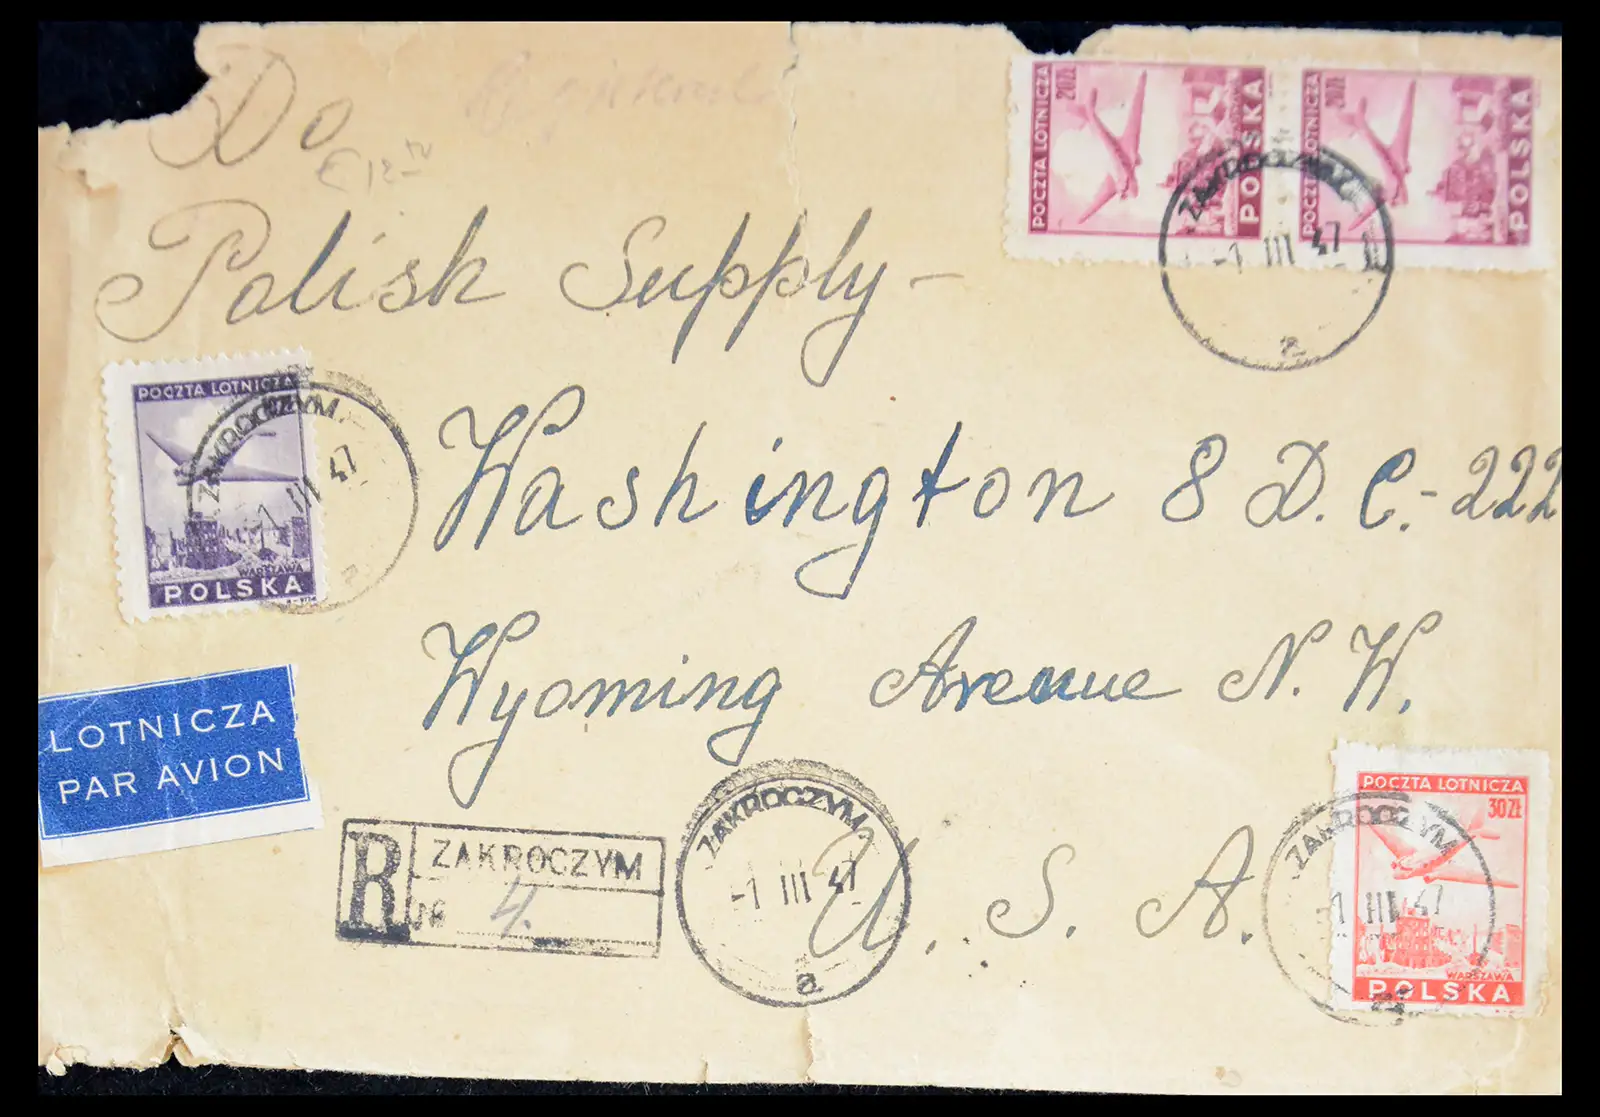 Do
Polish Supply-
Washington 8 D.C.-222
Wyoming Avenue N.W.
U.S.A.
POCZTA LOTNICZA
20ZŁ
POLSKA
POCZTA LOTNICZA
20ZŁ
POLSKA
ZAKROCZYM
-1 III 47
a
POCZTA LOTNICZA
WARSZAWA
POLSKA
ZAKROCZYM
-1 III 47
a
LOTNICZA
PAR AVION
R ZAKROCZYM
№ 4.
ZAKROCZYM
-1 III 47
a
POCZTA LOTNICZA
30ZŁ
WARSZAWA
POLSKA
ZAKROCZYM
-1 III 47